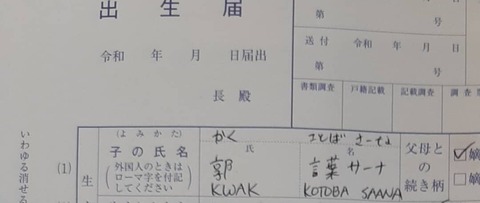 出生届
令和 年 月 日届出
長 殿
第 号
送付 令和 年 月 日
第 号
書類調査 戸籍記載 記載調査 調査
いわゆる消せる
(1)
生
(よみかた) かく ことば さーな
子の氏名 氏 名
外国人のときは
ローマ字を付記
してください
郭 言葉サーナ
KWAK KOTOBA SAANA
父母と
の
続き柄
嫡
嫡